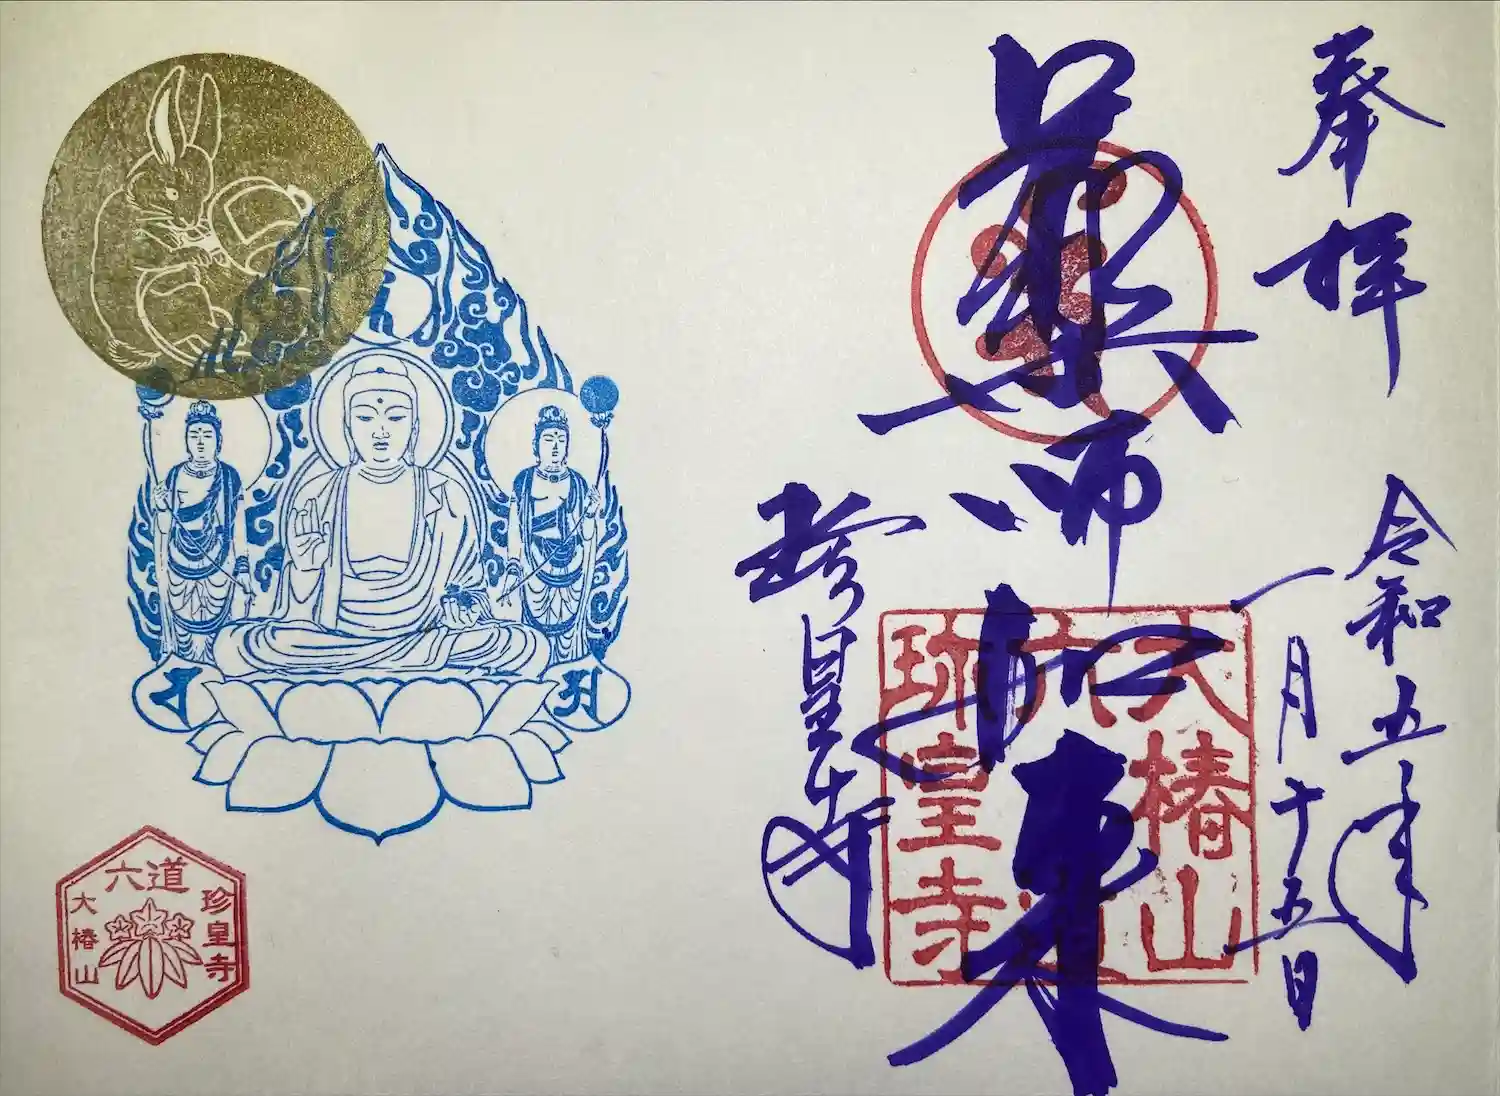 奉拝
令和五年
一月十五日
薬師如来
珍皇寺
大椿山
六道
珍皇寺
六道
珍皇寺
大椿山